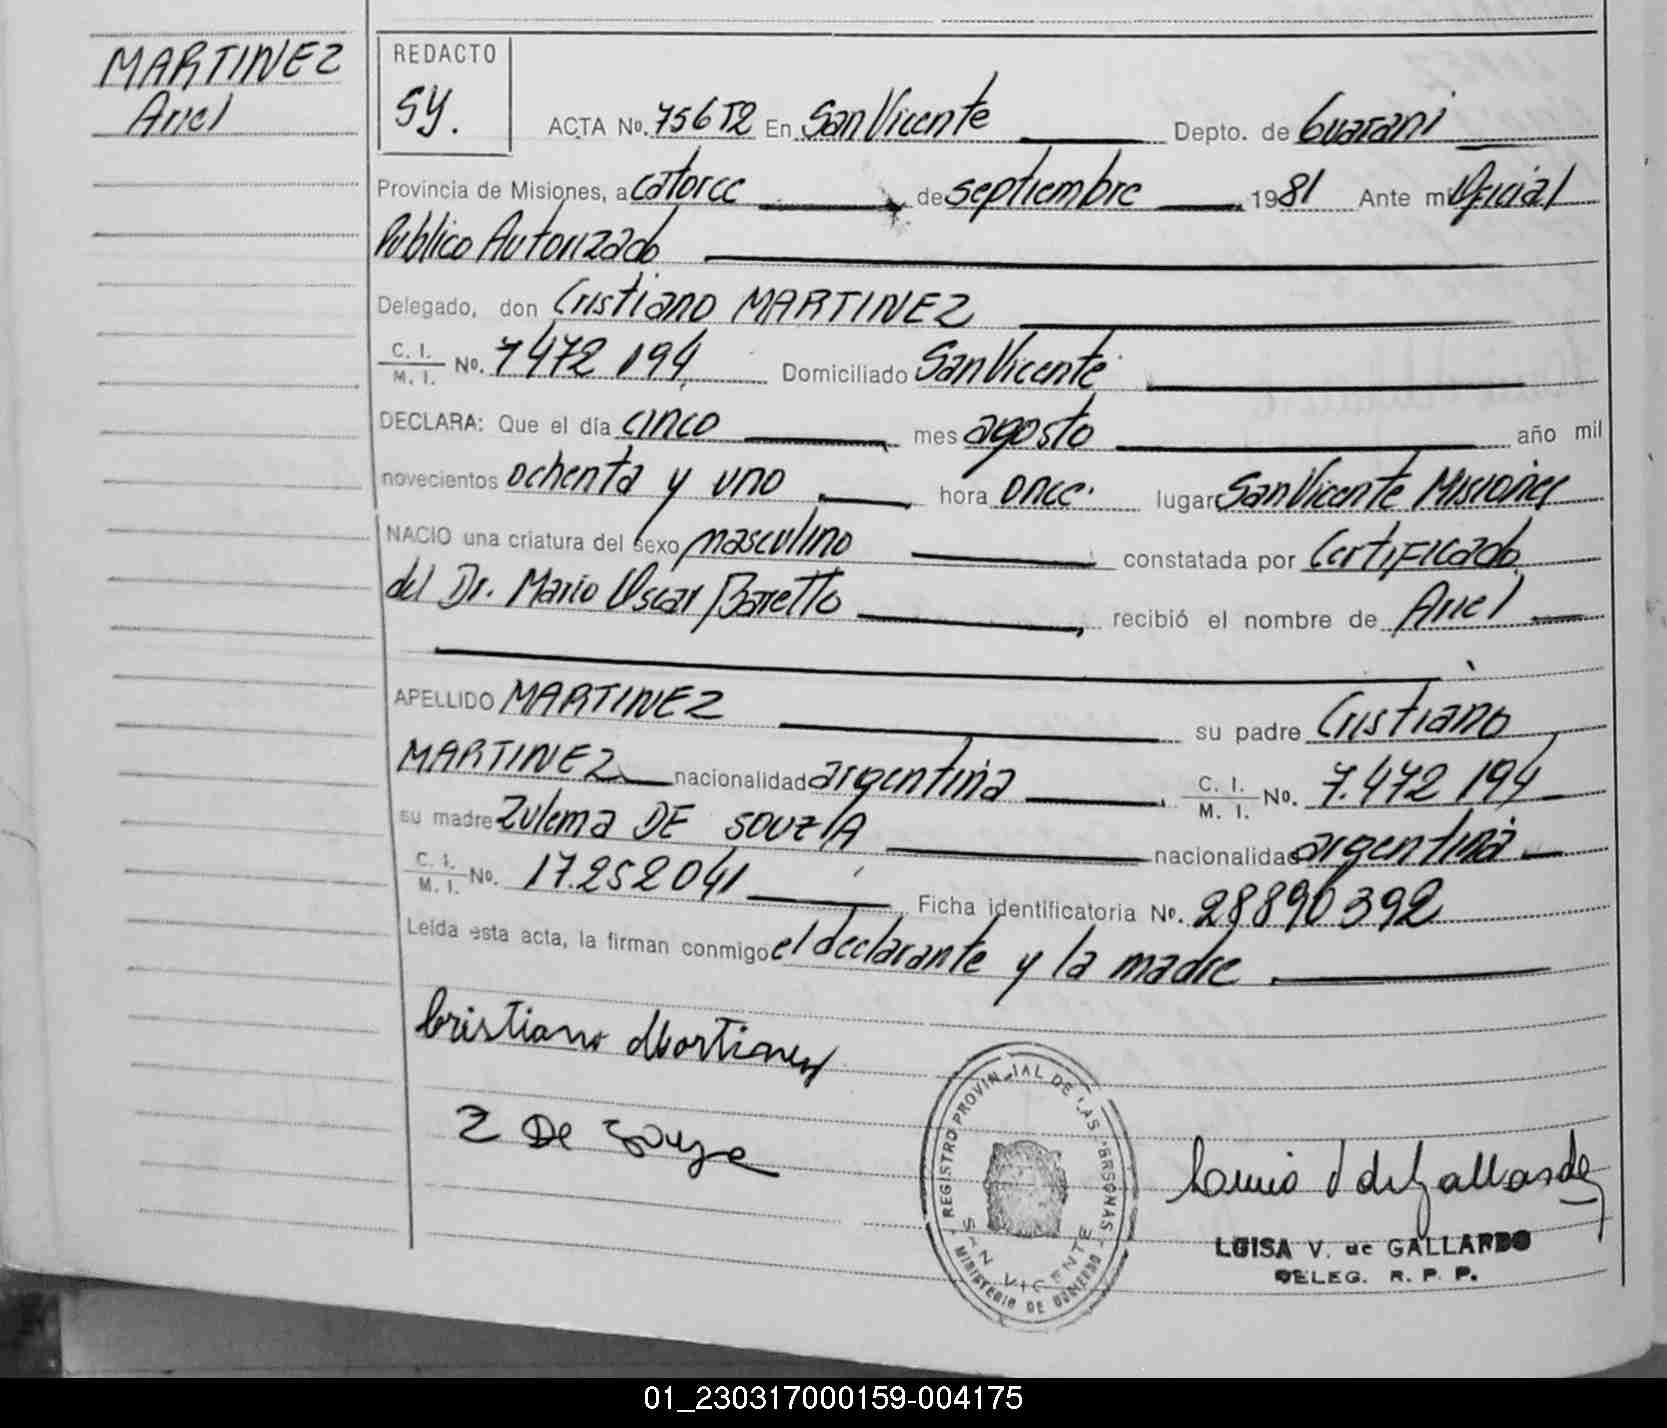 MARTINEZ
Ariel
REDACTO
SY.
ACTA No. 756 T2 En San Vicente Depto. de Guarani
Provincia de Misiones, a catorce de septiembre 1981 Ante mi Oficial
Publico Autorizado
Delegado, don Cristiano MARTINEZ
C. I. / M. I. No. 7472 194 Domiciliado San Vicente
DECLARA: Que el día cinco mes agosto año mil
novecientos ochenta y uno hora once. lugar San Vicente Misiones
NACIO una criatura del sexo masculino constatada por Certificado
del Dr. Mario Oscar Baretto, recibió el nombre de Ariel
APELLIDO MARTINEZ su padre Cristiano
MARTINEZ nacionalidad argentina C. I. / M. I. No. 7.472 194
su madre Zulema DE SOUZA nacionalidad argentina
C. I. / M. I. No. 17.252041 Ficha identificatoria No. 28890392
Leída esta acta, la firman conmigo el declarante y la madre
Cristiano Martinez
Z De Souza
REGISTRO PROVINCIAL DE LAS PERSONAS
SAN VICENTE
MINISTERIO DE GOBIERNO
LUISA V. de GALLARDO
DELEG. R. P. P.
01_230317000159-004175